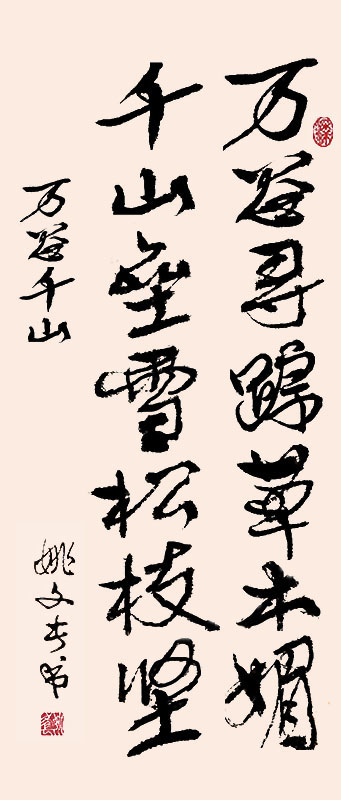 万谷寻踪草木媚
千山垒雪松枝坚
万谷千山
姚文书